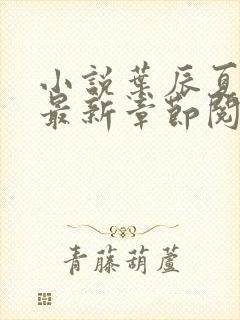 小說葉辰夏
最新章節閱
青藤葫蘆